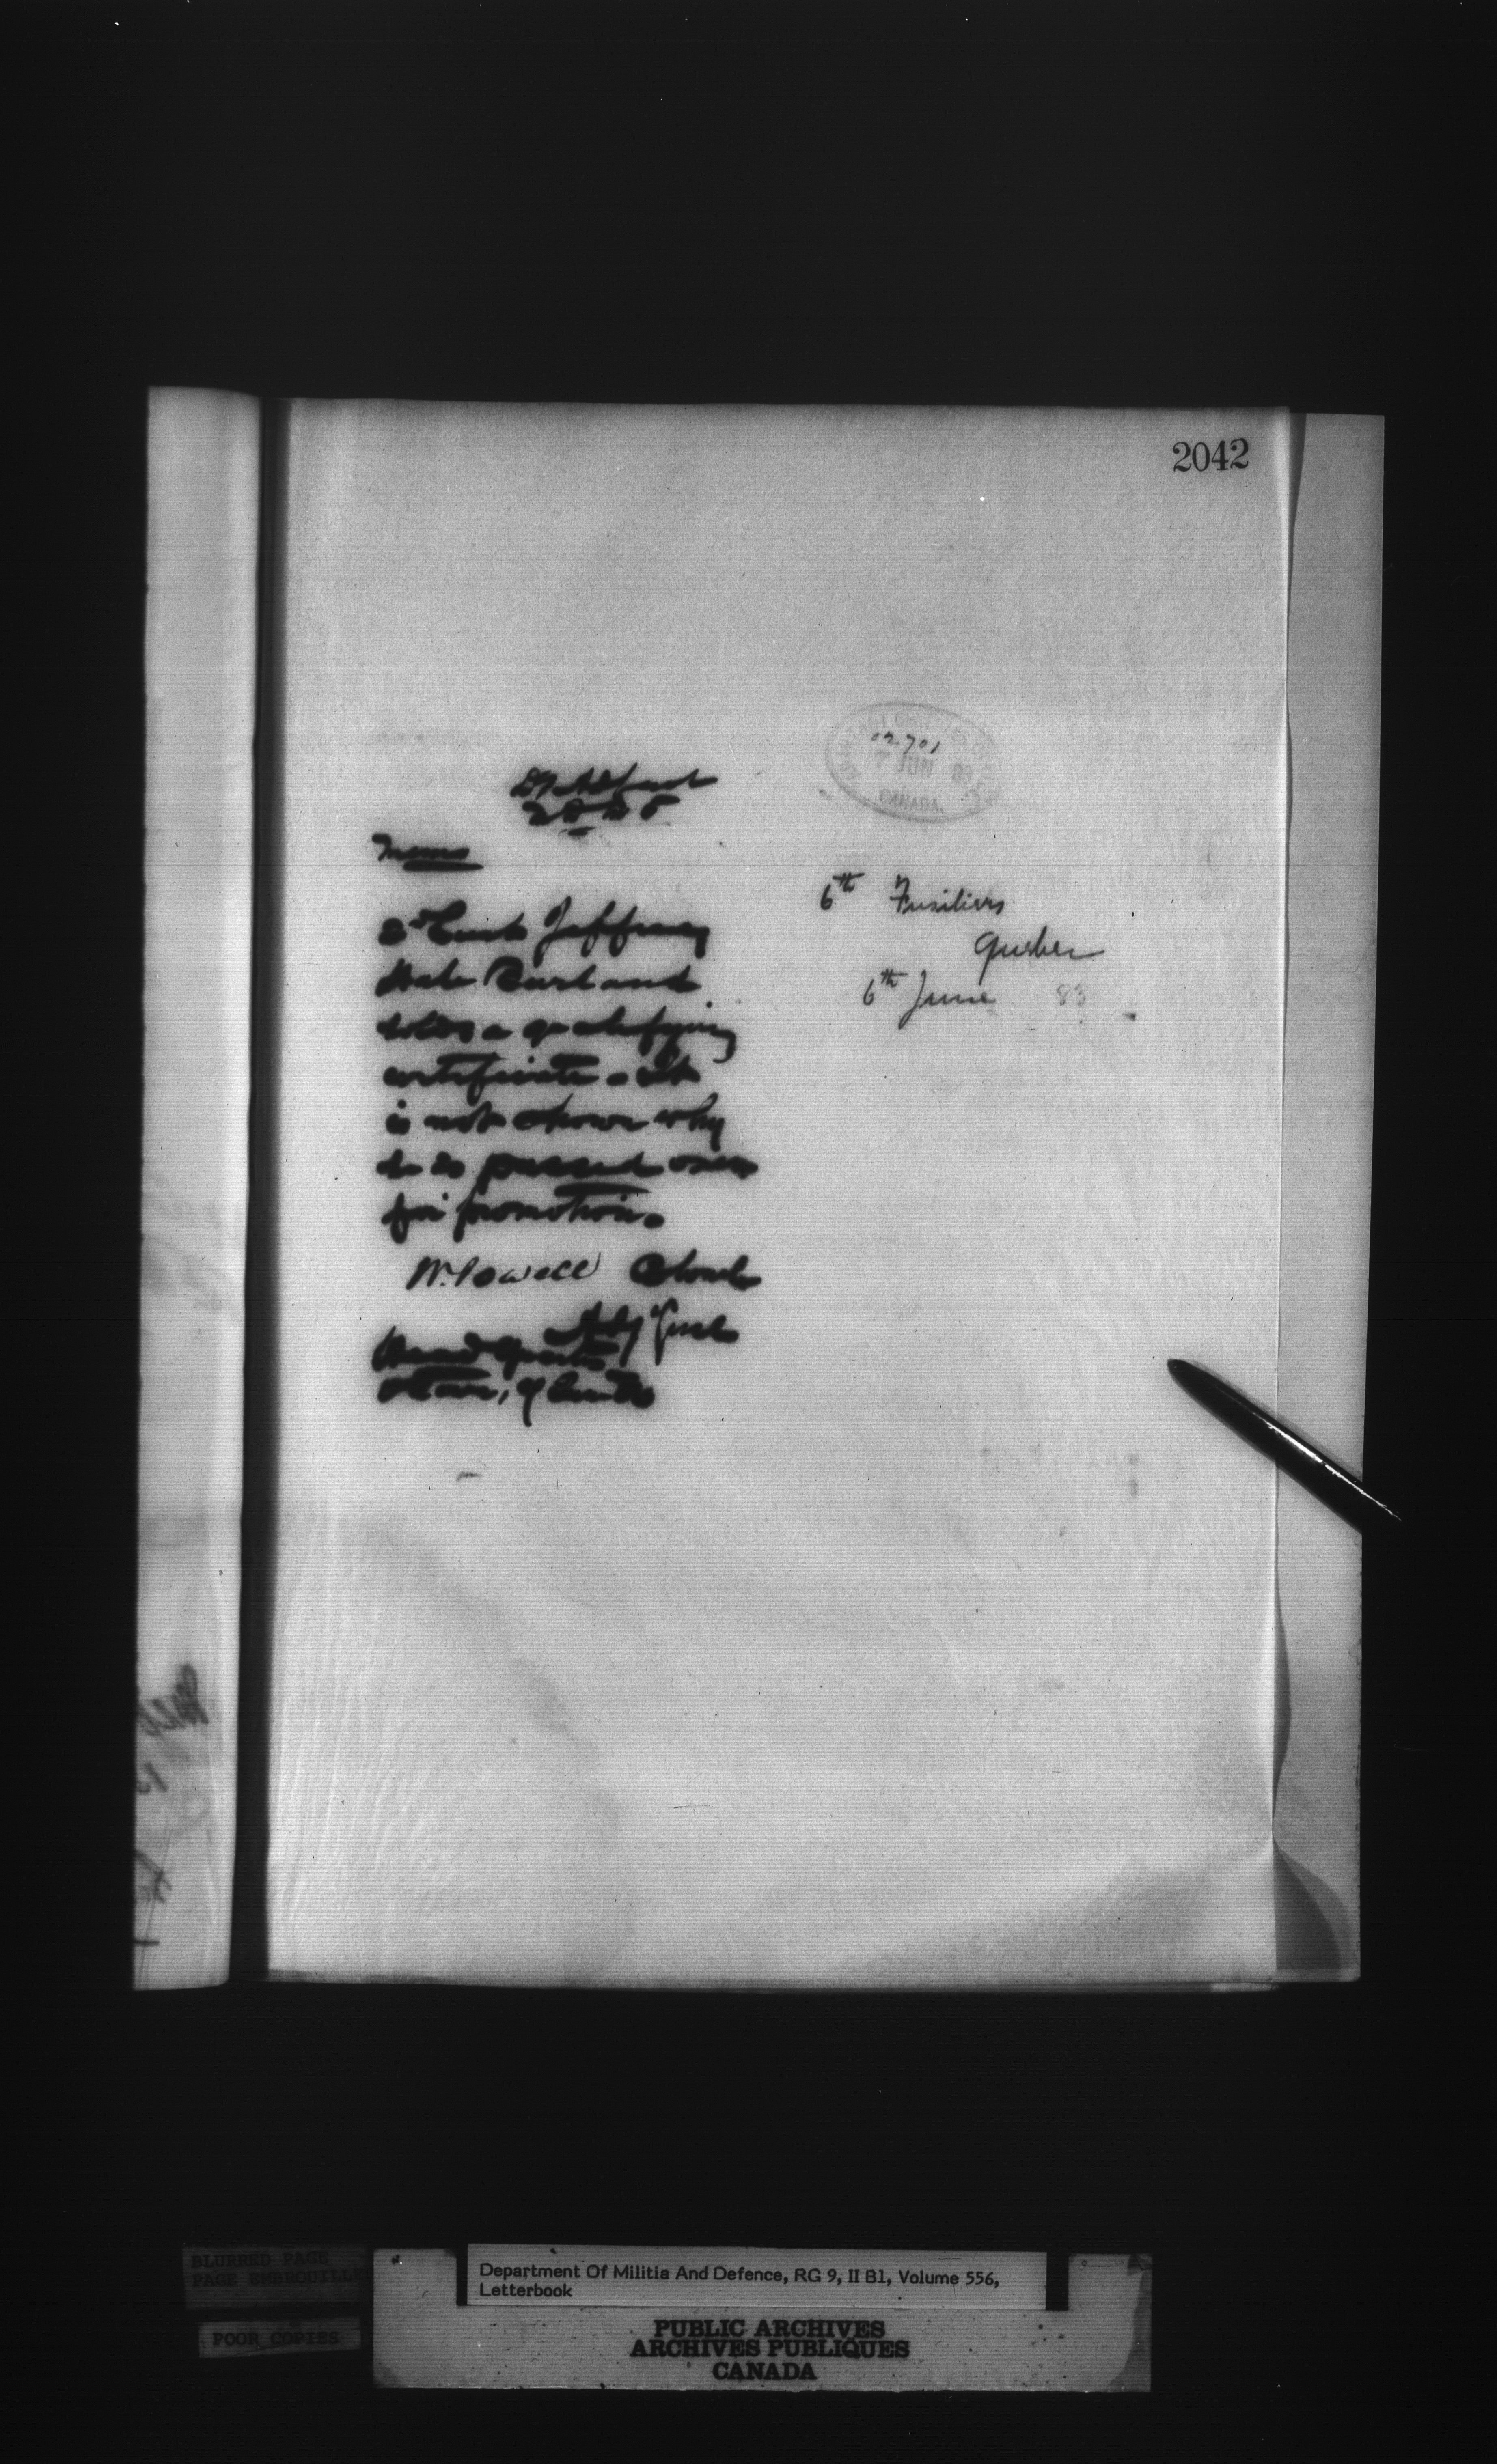 2042
02701
7 JUN 83
CANADA
Memo
6th Fusiliers
Quebec
6th June 83
2d Lieut Jeffrey
Hale Burland
holds a qualifying
certificate. It
is not shown why
he is passed over
for promotion.
W. Powell Colonel
Adj Genl
Head Quarters
Ottawa, 9 June 83
BLURRED PAGE
PAGE EMBROUILLEE
POOR COPIES
Department Of Militia And Defence, RG 9, II B1, Volume 556,
Letterbook
PUBLIC ARCHIVES
ARCHIVES PUBLIQUES
CANADA